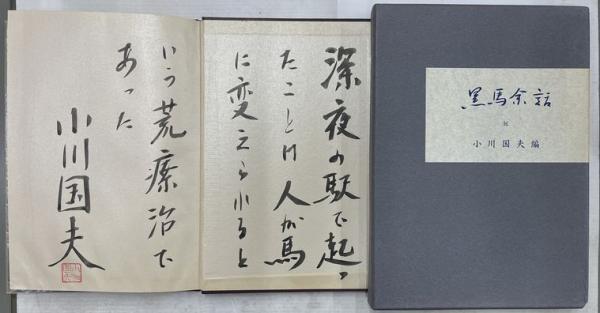 深夜の駅で起っ
たことは人が馬
に変えられると
いう荒療治で
あった
小川国夫
黒馬余話
小川国夫編